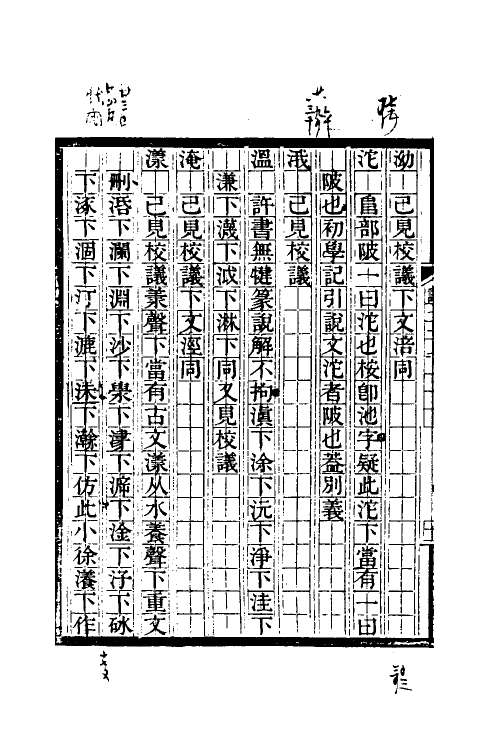 泑　已見校議下文涪同
沱　𨸏部陂一曰沱也桉卽池字疑此沱下當有一曰
陂也初學記引說文沱者陂也葢別義
涐　已見校議
溫　許書無犍篆說解不拘滇下涂下沅下淨下洼下
溓下濊下泧下淋下同又見校議
淹　已見校議下文溼同
漾　已見校議羕聲下當有古文瀁从水養聲下重文
刪湣下瀾下淵下沙下澩下津下渧下淦下汓下砅
下涿下涸下汀下漉下沬下瀚下仿此小徐瀁下作